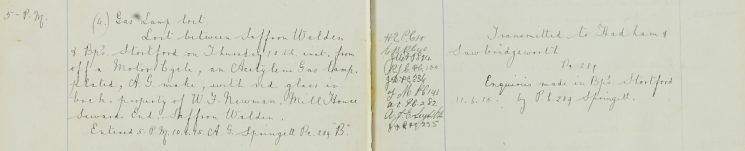 5 - P.M.
(6) Gas Lamp lost
Lost between Saffron Walden
& Bp's. Stortford on Thursday 10th inst. from
off a Motor Cycle, an Acetylene Gas Lamp.
plated, A.G. make, with red glass in
back. property of W. F. Newman. Mill House
Sewards End. Saffron Walden.
Entered 5. P.M. 10.6.15. A. G. Springett Pc. 209 "B".
Transmitted to Hadham &
Sawbridgeworth
Pc 209
Enquiries made in Bp's. Stortford
11.6.15. by Pc 209 Springett.